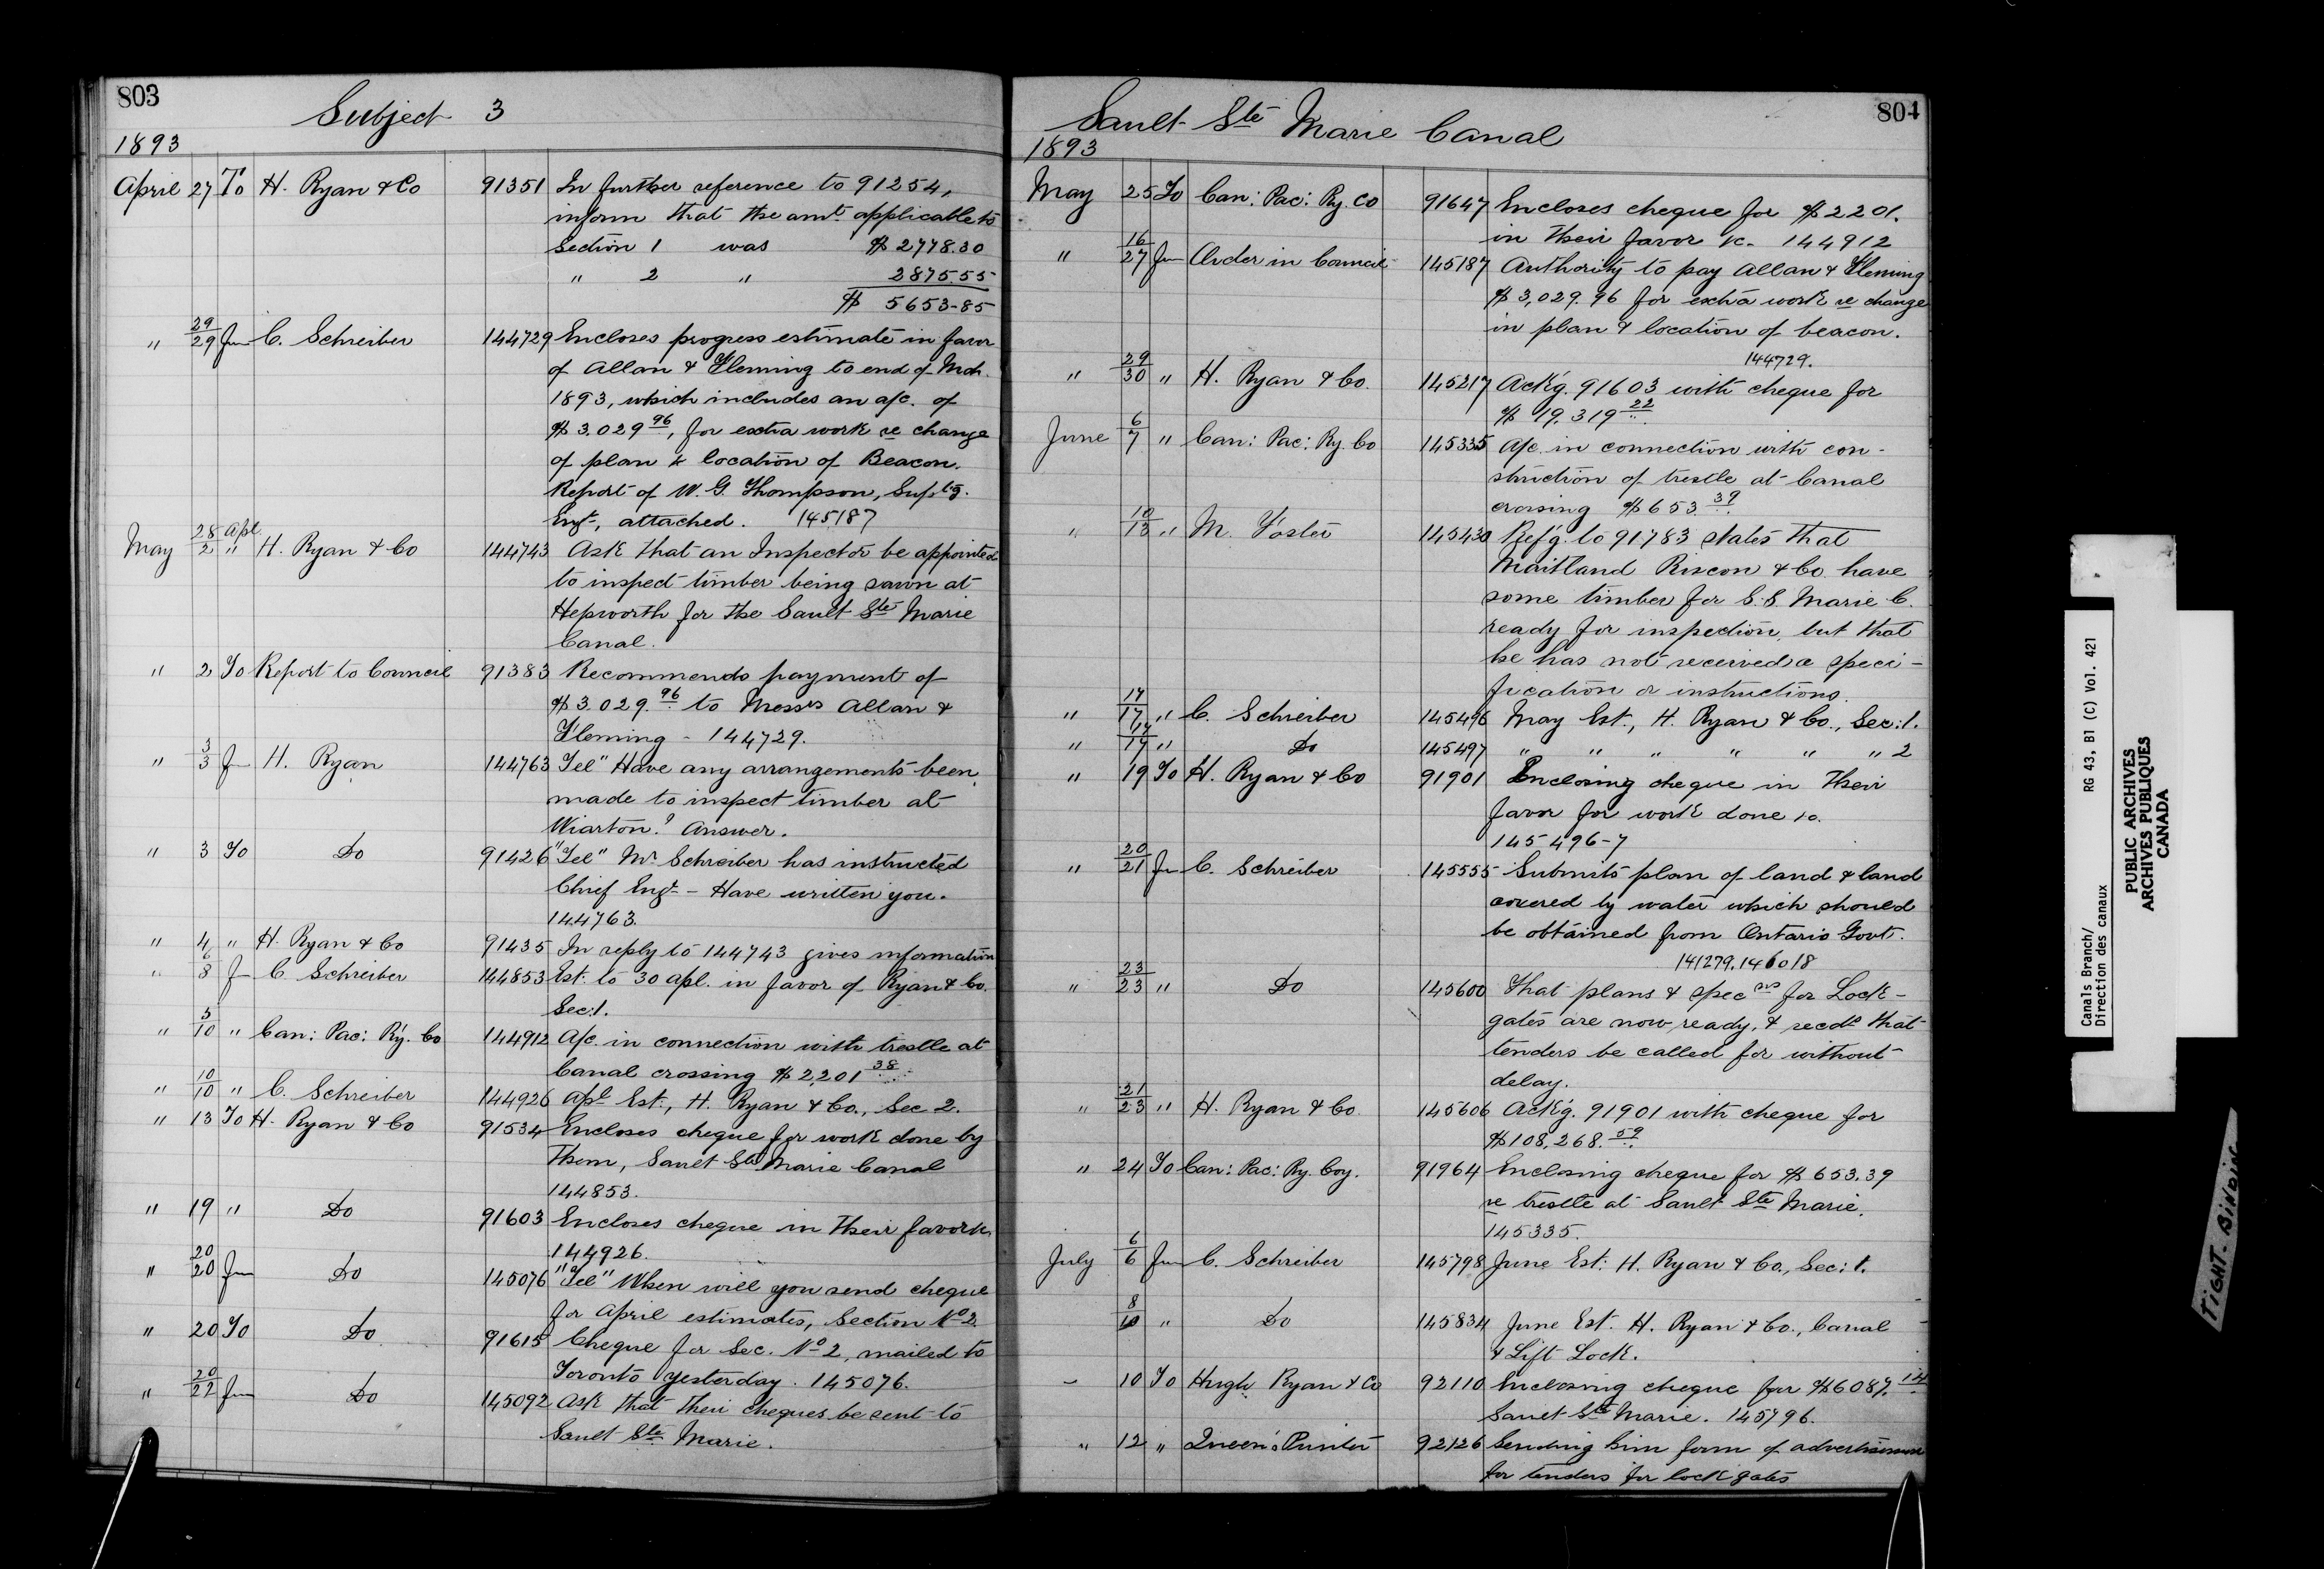 803
Subject 3
1893
April 27 To H. Ryan & Co 91351 In further reference to 91254,
inform that the amt. applicable to
Section 1 was $ 2778.30
" 2 " 2875.55
$ 5653-85
" 29/29 Fm C. Schreiber 144729 Encloses progress estimate in favor
of Allan & Fleming to end of Mch.
1893, which includes an a/c. of
$ 3.029 96, for extra work re change
of plan & location of Beacon.
Report of W. G. Thompson, Suptg.
Engr, attached. 145187
May 28 Apl/2 " H. Ryan & Co 144743 Ask that an Inspector be appointed
to inspect timber being sawn at
Hepworth for the Sault Ste Marie
Canal.
" 2 To Report to Council 91383 Recommends payment of
$ 3.029.96 to Messrs Allan &
Fleming - 144729.
" 3/3 Fm H. Ryan 144763 Tel" Have any arrangements been
made to inspect timber at
Wiarton? Answer.
" 3 To Do 91426 "Tel" Mr Schreiber has instructed
Chief Engr - Have written you.
144763.
" 4 " H. Ryan & Co 91435 In reply to 144743 gives information
" 6/8 F C Schreiber 144853 Est: to 30 Apl. in favor of Ryan & Co.
Sec: 1.
" 5/10 " Can: Pac: Ry. Co 144912 A/c. in connection with trestle at
Canal crossing $ 2,201 38
" 10/10 " C. Schreiber 144926 Apl Est:, H. Ryan & Co., Sec 2.
" 13 To H. Ryan & Co 91534 Encloses cheque for work done by
them, Sault Ste Marie Canal
144853.
" 19 " Do 91603 Encloses cheque in their favor &c
144926.
" 20/20 Fm Do 145076 "Tel" When will you send cheque
for April estimates, Section No 2
" 20 To Do 91615 Cheque for Sec. No 2, mailed to
Toronto yesterday. 145076.
" 20/22 Fm Do 145092 Ask that their cheques be sent to
Sault Ste. Marie.
804
Sault Ste Marie Canal
1893
May 25 To Can: Pac: Ry. Co 91647 Encloses cheque for $ 2201.
in their favor &c. 144912
" 16/27 Fm Order in Council 145187 Authority to pay Allan & Fleming
$ 3,029.96 for extra work re change
in plan & location of beacon.
144729.
" 29/30 " H. Ryan & Co. 145217 Ackg. 91603 with cheque for
$ 19,319 22
June 6/7 " Can: Pac: Ry. Co 145335 A/c. in connection with con-
struction of trestle at Canal
crossing $ 653 39
" 10/13 " M. Foster 145430 Refg. to 91783 states that
Maitland Rixcon & Co. have
some timber for S.S. Marie C.
ready for inspection, but that
he has not received a speci-
fication or instructions.
" 14/17 " C. Schreiber 145496 May Est., H. Ryan & Co., Sec: 1.
" 14/17 " Do 145497 " " " " " " 2
" 19 To H. Ryan & Co 91901 Enclosing cheque in their
favor for work done &c.
145496-7
" 20/21 Fm C. Schreiber 145555 Submits plan of land & land
covered by water which should
be obtained from Ontario Govt.
141279. 146018
" 23/23 " Do 145600 That plans & specns for Lock-
gates are now ready, & recds that
tenders be called for without
delay.
" 21/23 " H. Ryan & Co. 145606 Ackg. 91901 with cheque for
$108,268.59
" 24 To Can: Pac: Ry. Coy. 91964 Enclosing cheque for $ 653.39
re trestle at Sault Ste Marie.
145335.
July 6/6 Fm C. Schreiber 145798 June Est: H. Ryan & Co., Sec: 1.
8/10 " Do 145834 June Est. H. Ryan & Co., Canal
& Lift Lock.
" 10 To Hugh Ryan & Co 92110 Enclosing cheque for $6087.14
Sault Ste Marie. 145796.
" 12 " Queen's Printer 92126 Sending him form of advertisement
for tenders for lock gates
Canals Branch/ RG 43, B1 (C) Vol. 421
Direction des canaux
PUBLIC ARCHIVES
ARCHIVES PUBLIQUES
CANADA
TIGHT BINDING